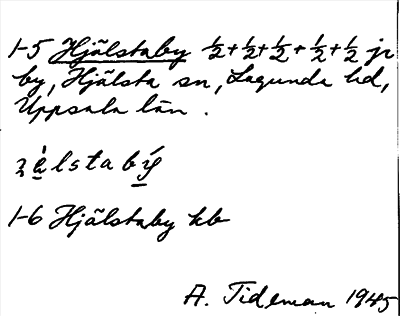 1-5 Hjälstaby ½+½+½+½+½ jr
by, Hjälsta sn, Lagunda hd,
Uppsala län.
ʒ̀ä̱lstabý̱
1-6 Hjälstaby kb
A. Tideman 1945